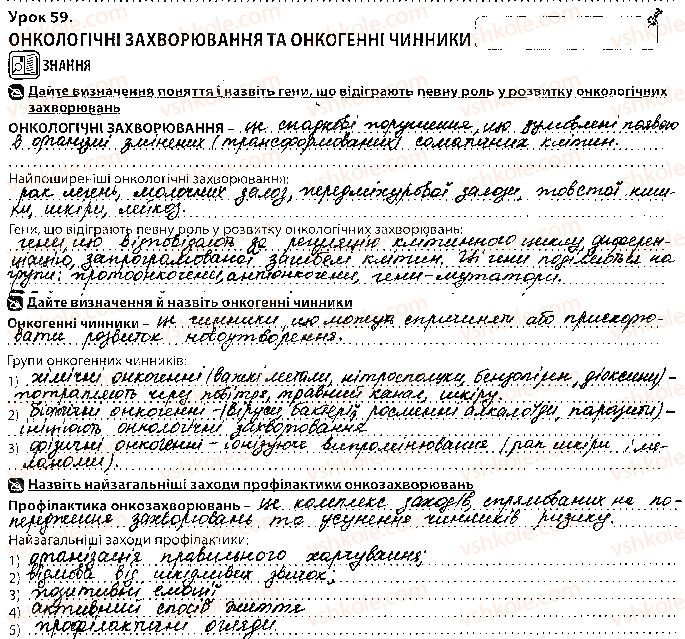 Урок 59.
ОНКОЛОГІЧНІ ЗАХВОРЮВАННЯ ТА ОНКОГЕННІ ЧИННИКИ
ЗНАННЯ
Дайте визначення поняття і назвіть гени, що відіграють певну роль у розвитку онкологічних
захворювань
ОНКОЛОГІЧНІ ЗАХВОРЮВАННЯ – це спадкові порушення, що зумовлені появою
в організмі змінених (трансформованих) соматичних клітин.
Найпоширеніші онкологічні захворювання:
рак легень, молочних залоз, передміхурової залози, товстої киш-
ки, шкіри, лейкоз.
Гени, що відіграють певну роль у розвитку онкологічних захворювань:
гени, що відповідають за регуляцію клітинного циклу, диферен-
ціацію, запрограмованої загибелі клітин. Ці гени поділяються на
групи: протоонкогени, антионкогени, гени-мутатори.
Дайте визначення й назвіть онкогенні чинники
Онкогенні чинники – це чинники, що можуть спричиняти або прискорю-
вати розвиток новоутворення.
Групи онкогенних чинників:
1) хімічні онкогенні (важкі метали, нітросполуки, бензопірен, діоксини) –
потрапляють через повітря, травний канал, шкіру.
2) біотичні онкогенні – (віруси, бактерії, рослинні алкалоїди, паразити) –
ініціюють онкологічні захворювання
3) фізичні онкогенні – іонізуюче випромінювання (рак шкіри і ме-
ланоми).
Назвіть найзагальніші заходи профілактики онкозахворювань
Профілактика онкозахворювань – це комплекс заходів, спрямованих на по-
передження захворювань та усунення чинників ризику.
Найзагальніші заходи профілактики:
1) організація правильного харчування;
2) відмова від шкідливих звичок,
3) позитивні емоції
4) активний спосіб життя
5) профілактичні огляди.
vshkole.com